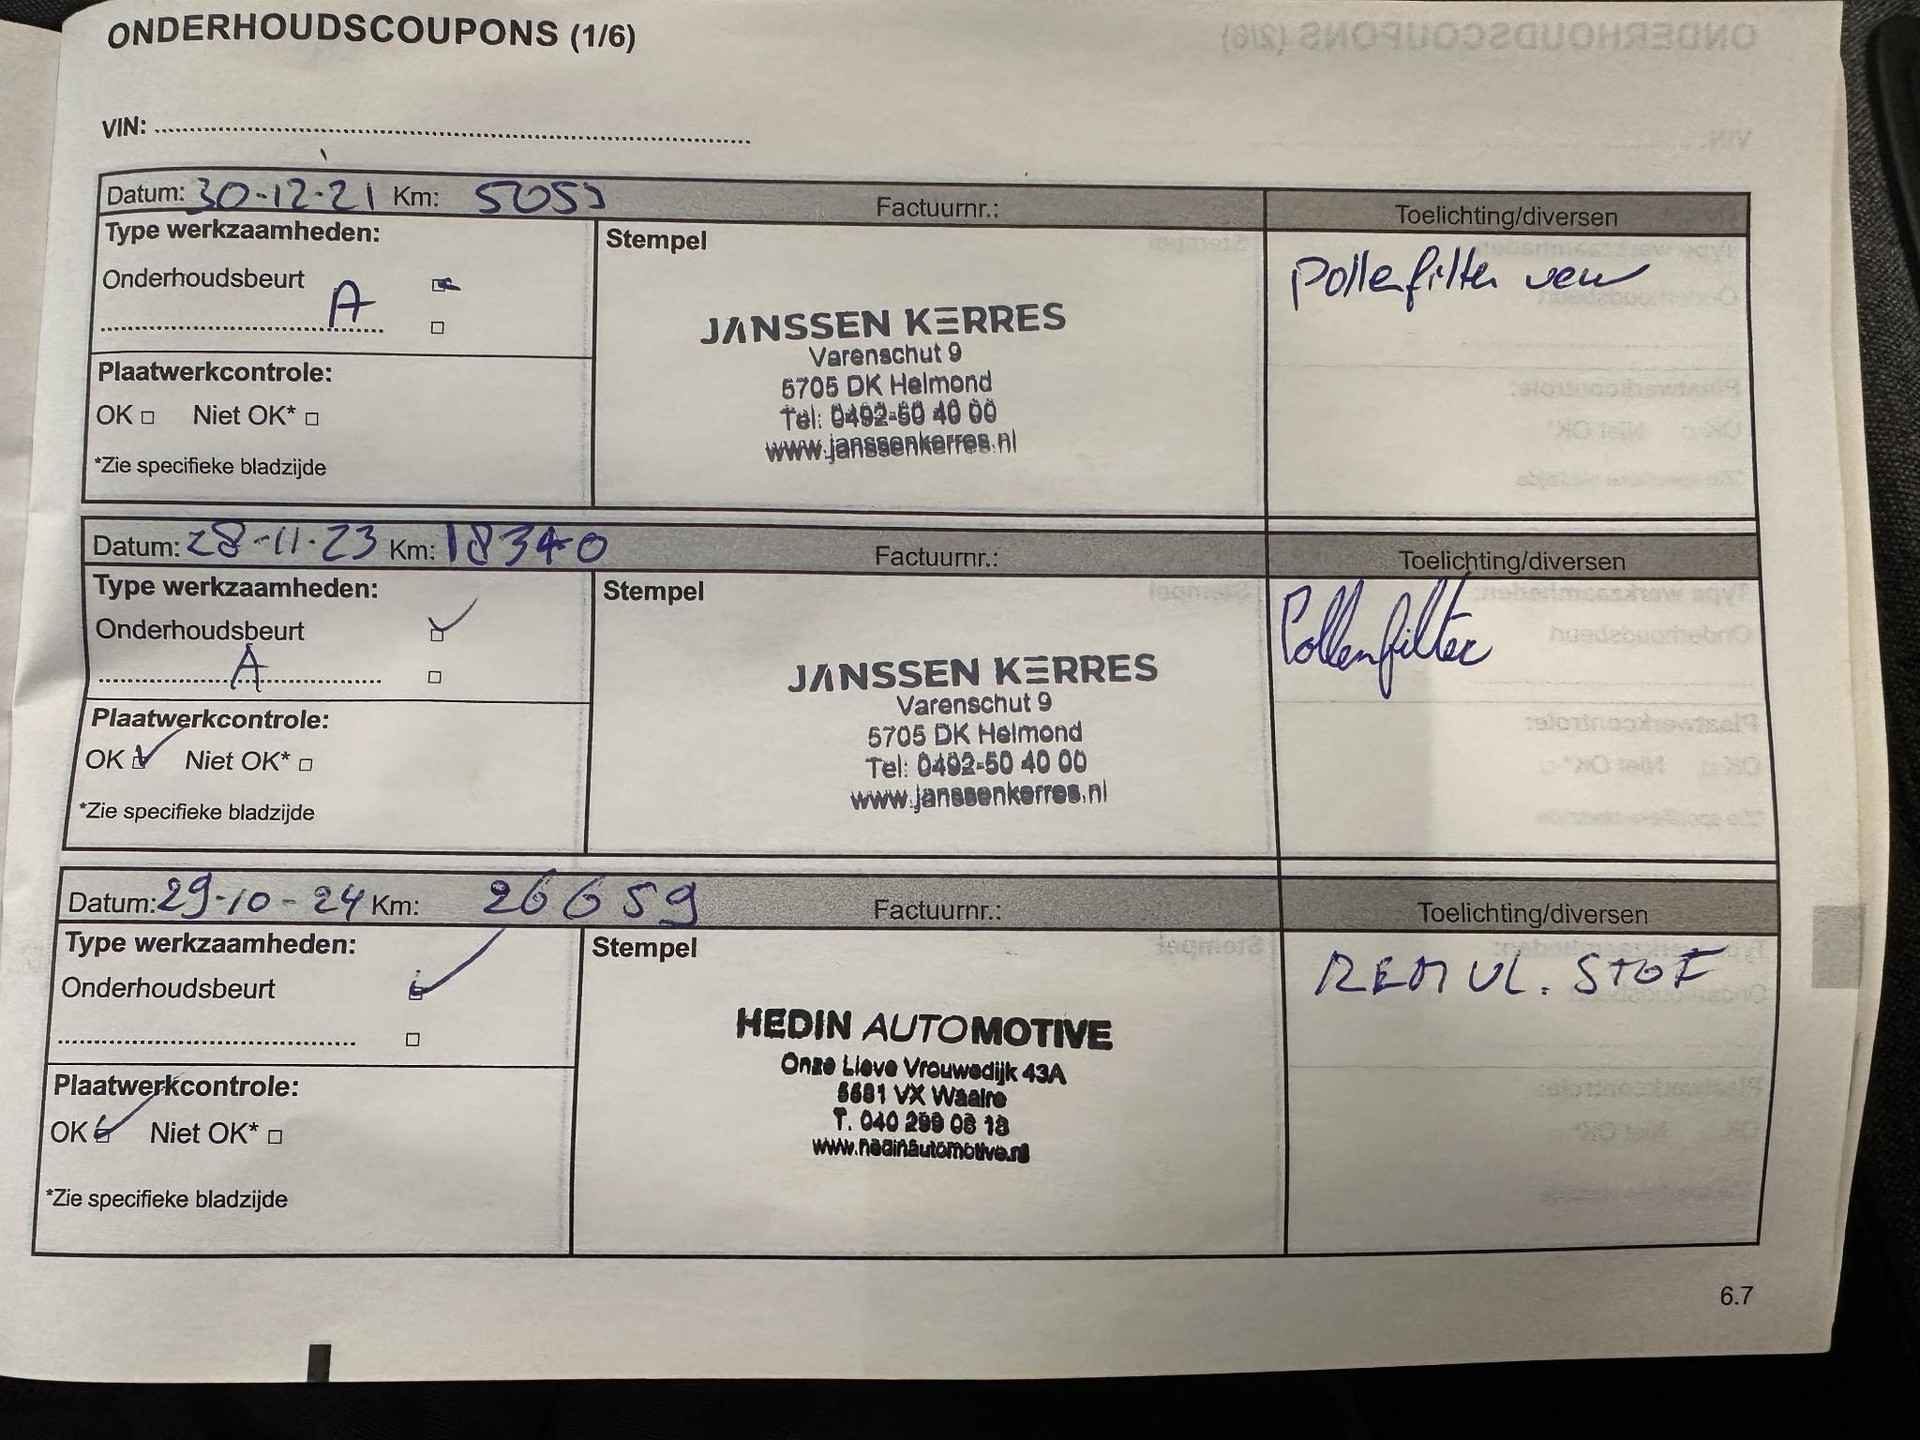 ONDERHOUDSCOUPONS (1/6)
VIN:
Datum: 30-12-21 Km: 5053 Factuurnr.: Toelichting/diversen
Type werkzaamheden:
Stempel
Onderhoudsbeurt
A
Pollenfilter verv
JANSSEN KERRES
Varenschut 9
5705 DK Helmond
Tel: 0492-50 40 00
www.janssenkerres.nl
Plaatwerkcontrole:
OK Niet OK*
*Zie specifieke bladzijde
Datum: 28-11-23 Km: 18340 Factuurnr.: Toelichting/diversen
Type werkzaamheden:
Stempel
Onderhoudsbeurt
A
Pollenfilter
JANSSEN KERRES
Varenschut 9
5705 DK Helmond
Tel: 0492-50 40 00
www.janssenkerres.nl
Plaatwerkcontrole:
OK Niet OK*
*Zie specifieke bladzijde
Datum: 29-10-24 Km: 26659 Factuurnr.: Toelichting/diversen
Type werkzaamheden:
Stempel
Onderhoudsbeurt
REMVL. STOF
HEDIN AUTOMOTIVE
Onze Lieve Vrouwedijk 43A
5581 VX Waalre
T. 040 299 08 18
www.hedinautomotive.nl
Plaatwerkcontrole:
OK Niet OK*
*Zie specifieke bladzijde
6.7